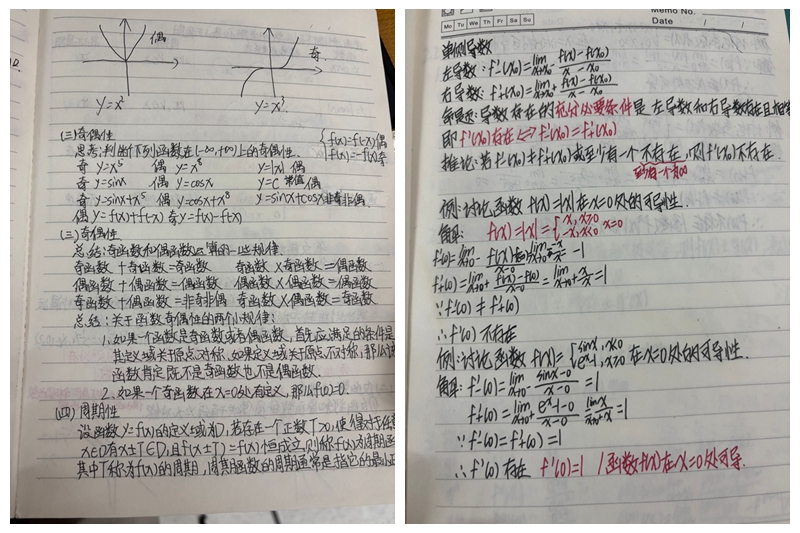 偶
奇
y=x²
y=x³
(三)奇偶性
思考:判断下列函数在(-∞,+∞)上的奇偶性.
{f(x)=f(-x)偶
f(x)=-f(-x)奇
奇 y=x⁵ 偶 y=x⁸ y=|x| 偶
奇 y=sinx 偶 y=cosx y=C 常值偶
奇 y=sinx+x⁵ 偶 y=cosx+x⁸ y=sinx+cosx 非奇非偶
偶 y=f(x)+f(-x) 奇 y=f(x)-f(-x)
(三)奇偶性
总结:奇函数和偶函数运算的一些规律:
奇函数+奇函数=奇函数 奇函数×奇函数=偶函数
偶函数+偶函数=偶函数 偶函数×偶函数=偶函数
奇函数+偶函数=非奇非偶 奇函数×偶函数=奇函数
总结:关于函数奇偶性的两个小规律:
1.如果一个函数是奇函数或者偶函数,首先应满足的条件是
其定义域关于原点对称.如果定义域关于原点不对称,那么
函数肯定既不是奇函数也不是偶函数.
2.如果一个奇函数在x=0处有定义,那么f(0)=0.
(四)周期性
设函数y=f(x)的定义域为D,若存在一个正数T>0,使得对于任意
x∈D有x±T∈D,且f(x±T)=f(x)恒成立,则称f(x)为周期函
其中T称为f(x)的周期,周期函数的周期通常是指它的最小正
Memo No.
Mo Tu We Th Fr Sa Su
Date / /
单侧导数
左导数:f'₋(x₀)=lim x→x₀⁻ f(x)-f(x₀)/x-x₀
右导数:f'₊(x₀)=lim x→x₀⁺ f(x)-f(x₀)/x-x₀
命题:导数存在的充分必要条件是左导数和右导数存在且相等
即 f'(x₀)存在⇔f'₋(x₀)=f'₊(x₀)
推论:若f'₋(x₀)≠f'₊(x₀)或至少有一个不存在,则f'(x₀)不存在.
至少有一个为∞
例:讨论函数f(x)=|x|在x=0处的可导性.
解: f(x)=|x|={x, x≥0
-x, x<0 x=0
f'₋(0)=lim x→0⁻ f(x)-f(0)/x-0=lim x→0⁻ -x/x=-1
f'₊(0)=lim x→0⁺ f(x)-f(0)/x-0=lim x→0⁺ x/x=1
∵f'₋(0)≠f'₊(0)
∴f'(0)不存在
例:讨论函数f(x)={sinx, x<0
eˣ-1, x≥0 在x=0处的可导性.
解:f'₋(0)=lim x→0⁻ sinx-0/x-0=1
f'₊(0)=lim x→0⁺ eˣ-1-0/x-0 lim x→0⁺ x/x=1
∵f'₋(0)=f'₊(0)=1
∴f'(0)存在 f'(0)=1 /函数f(x)在x=0处可导.